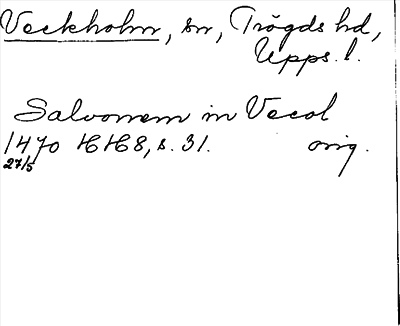 Veckholm, sn, Trögds hd,
Upps. l.
Salvonem in Vecol
1470 HH8, s. 31. orig.
27/5